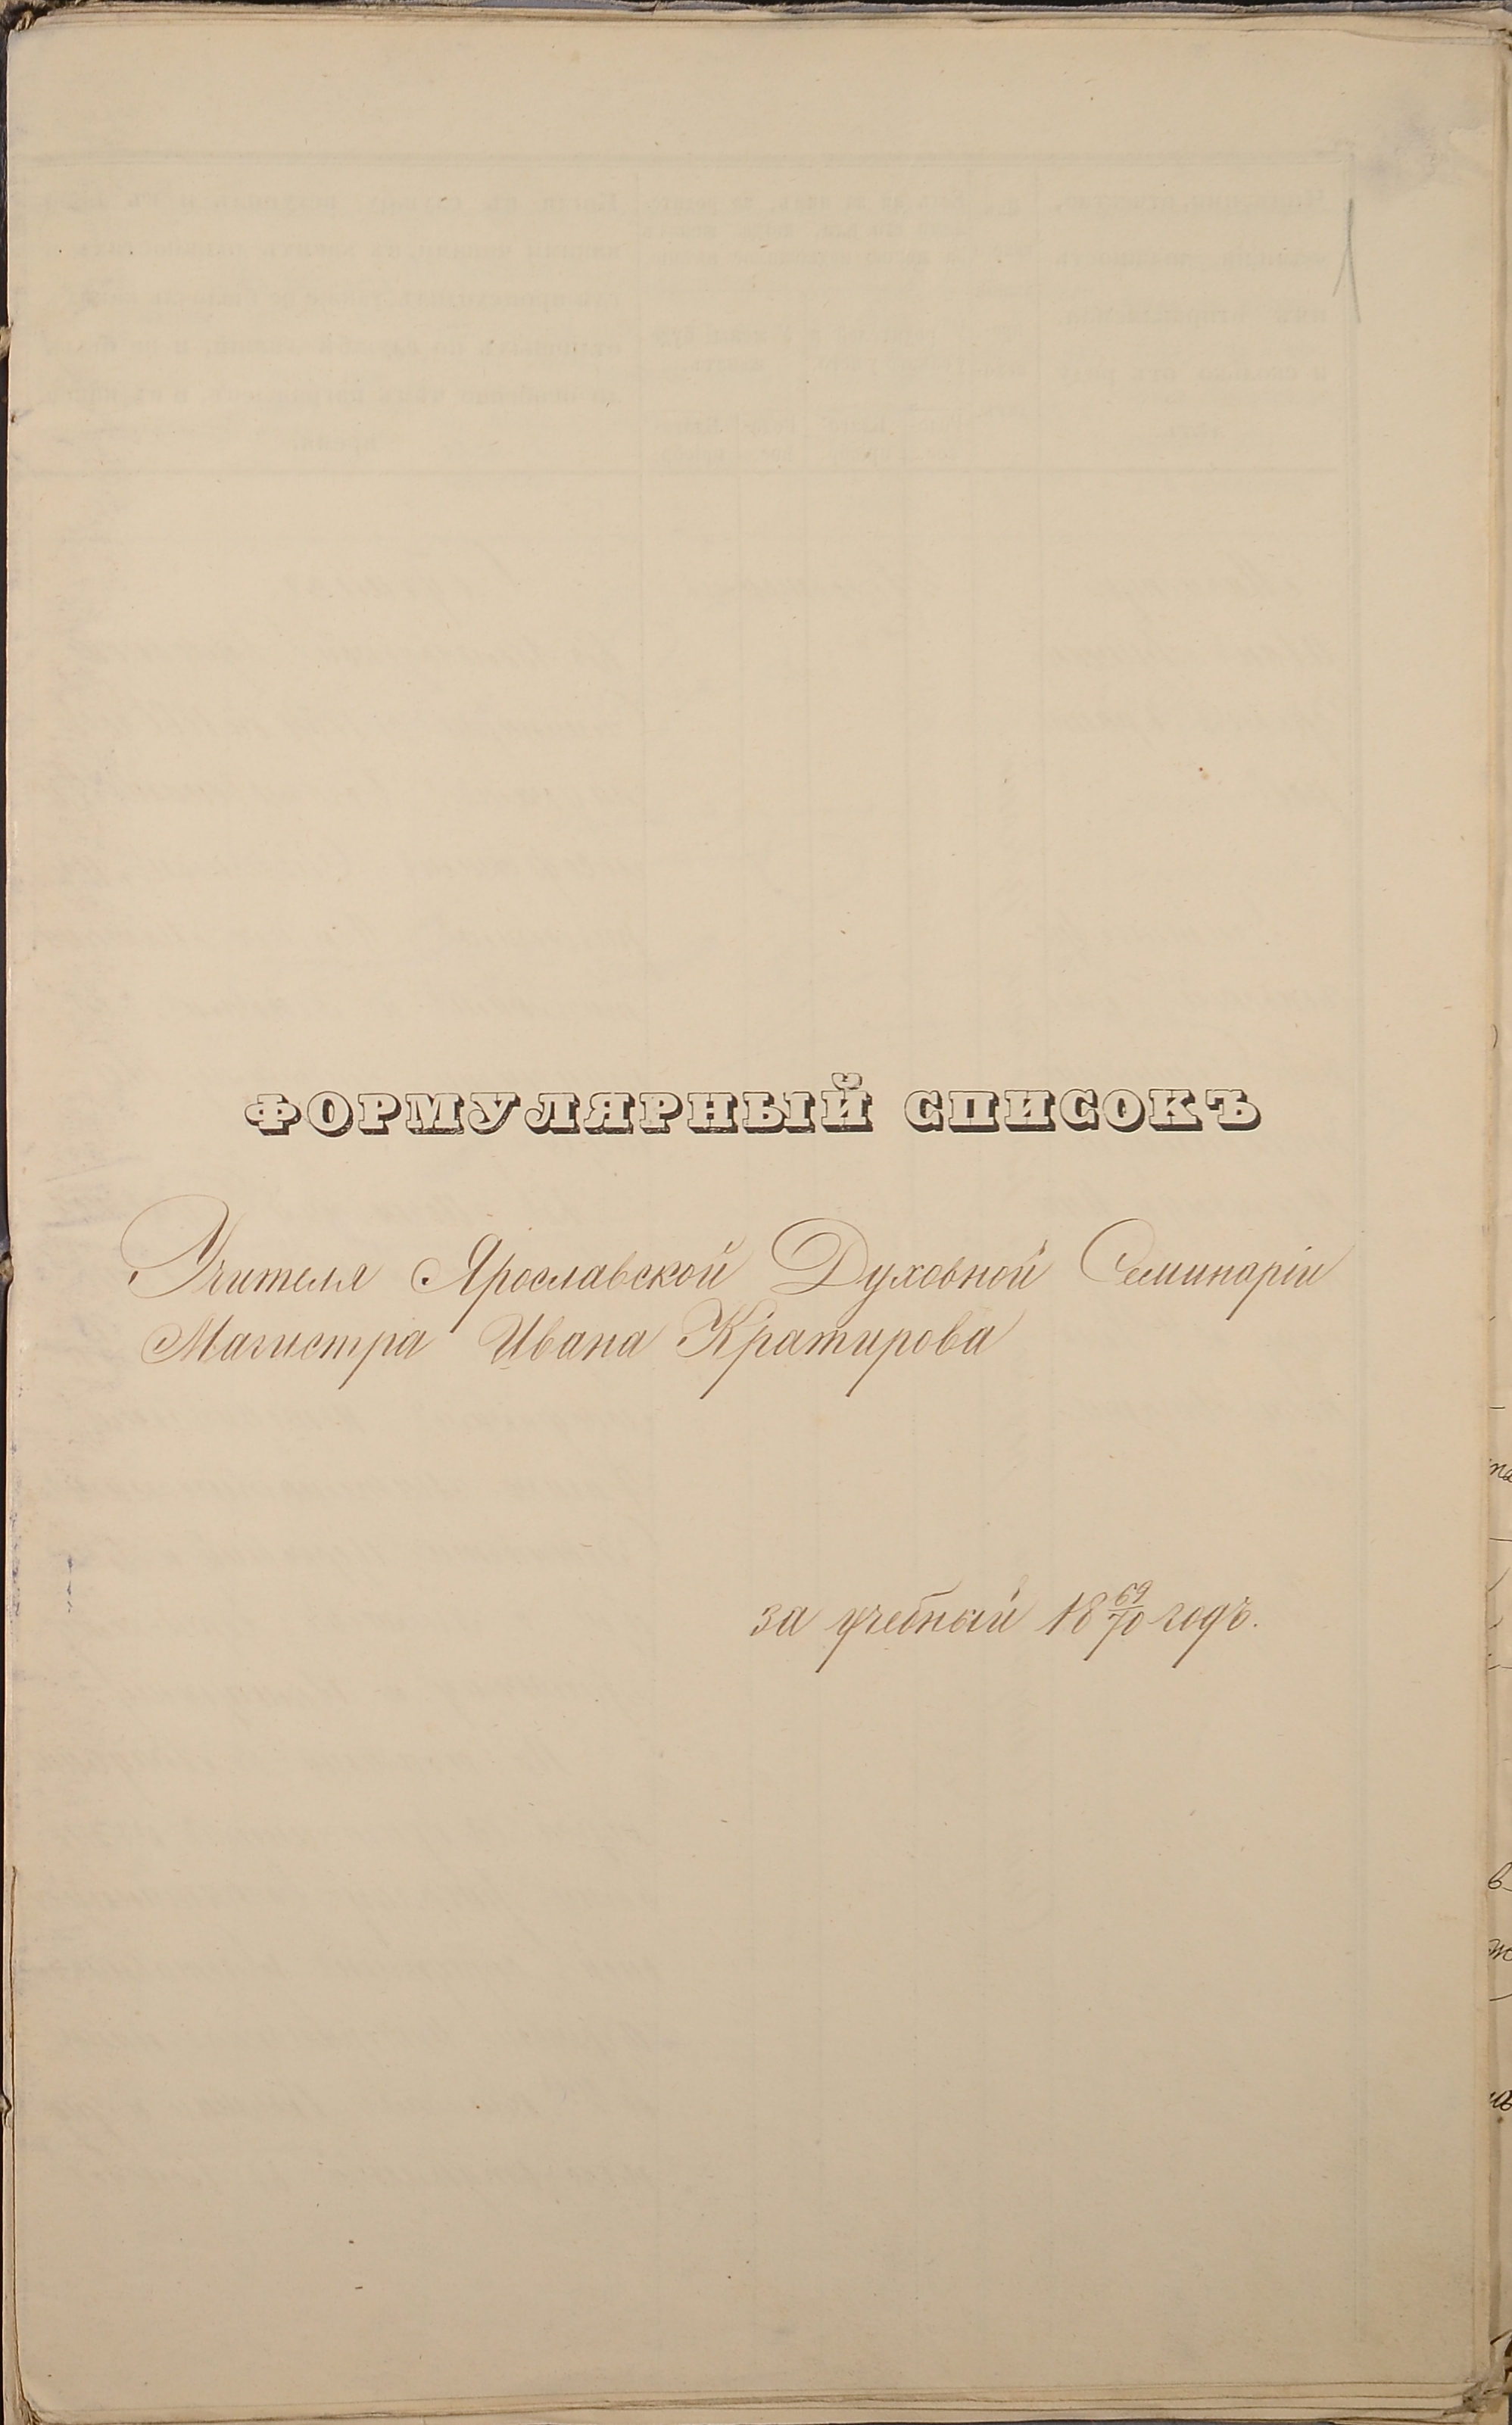 1
ФОРМУЛЯРНЫЙ СПИСОКЪ
Учителя Ярославской Духовной Семинаріи
Магистра Ивана Кратирова
за учебный 18 69/70 годъ.